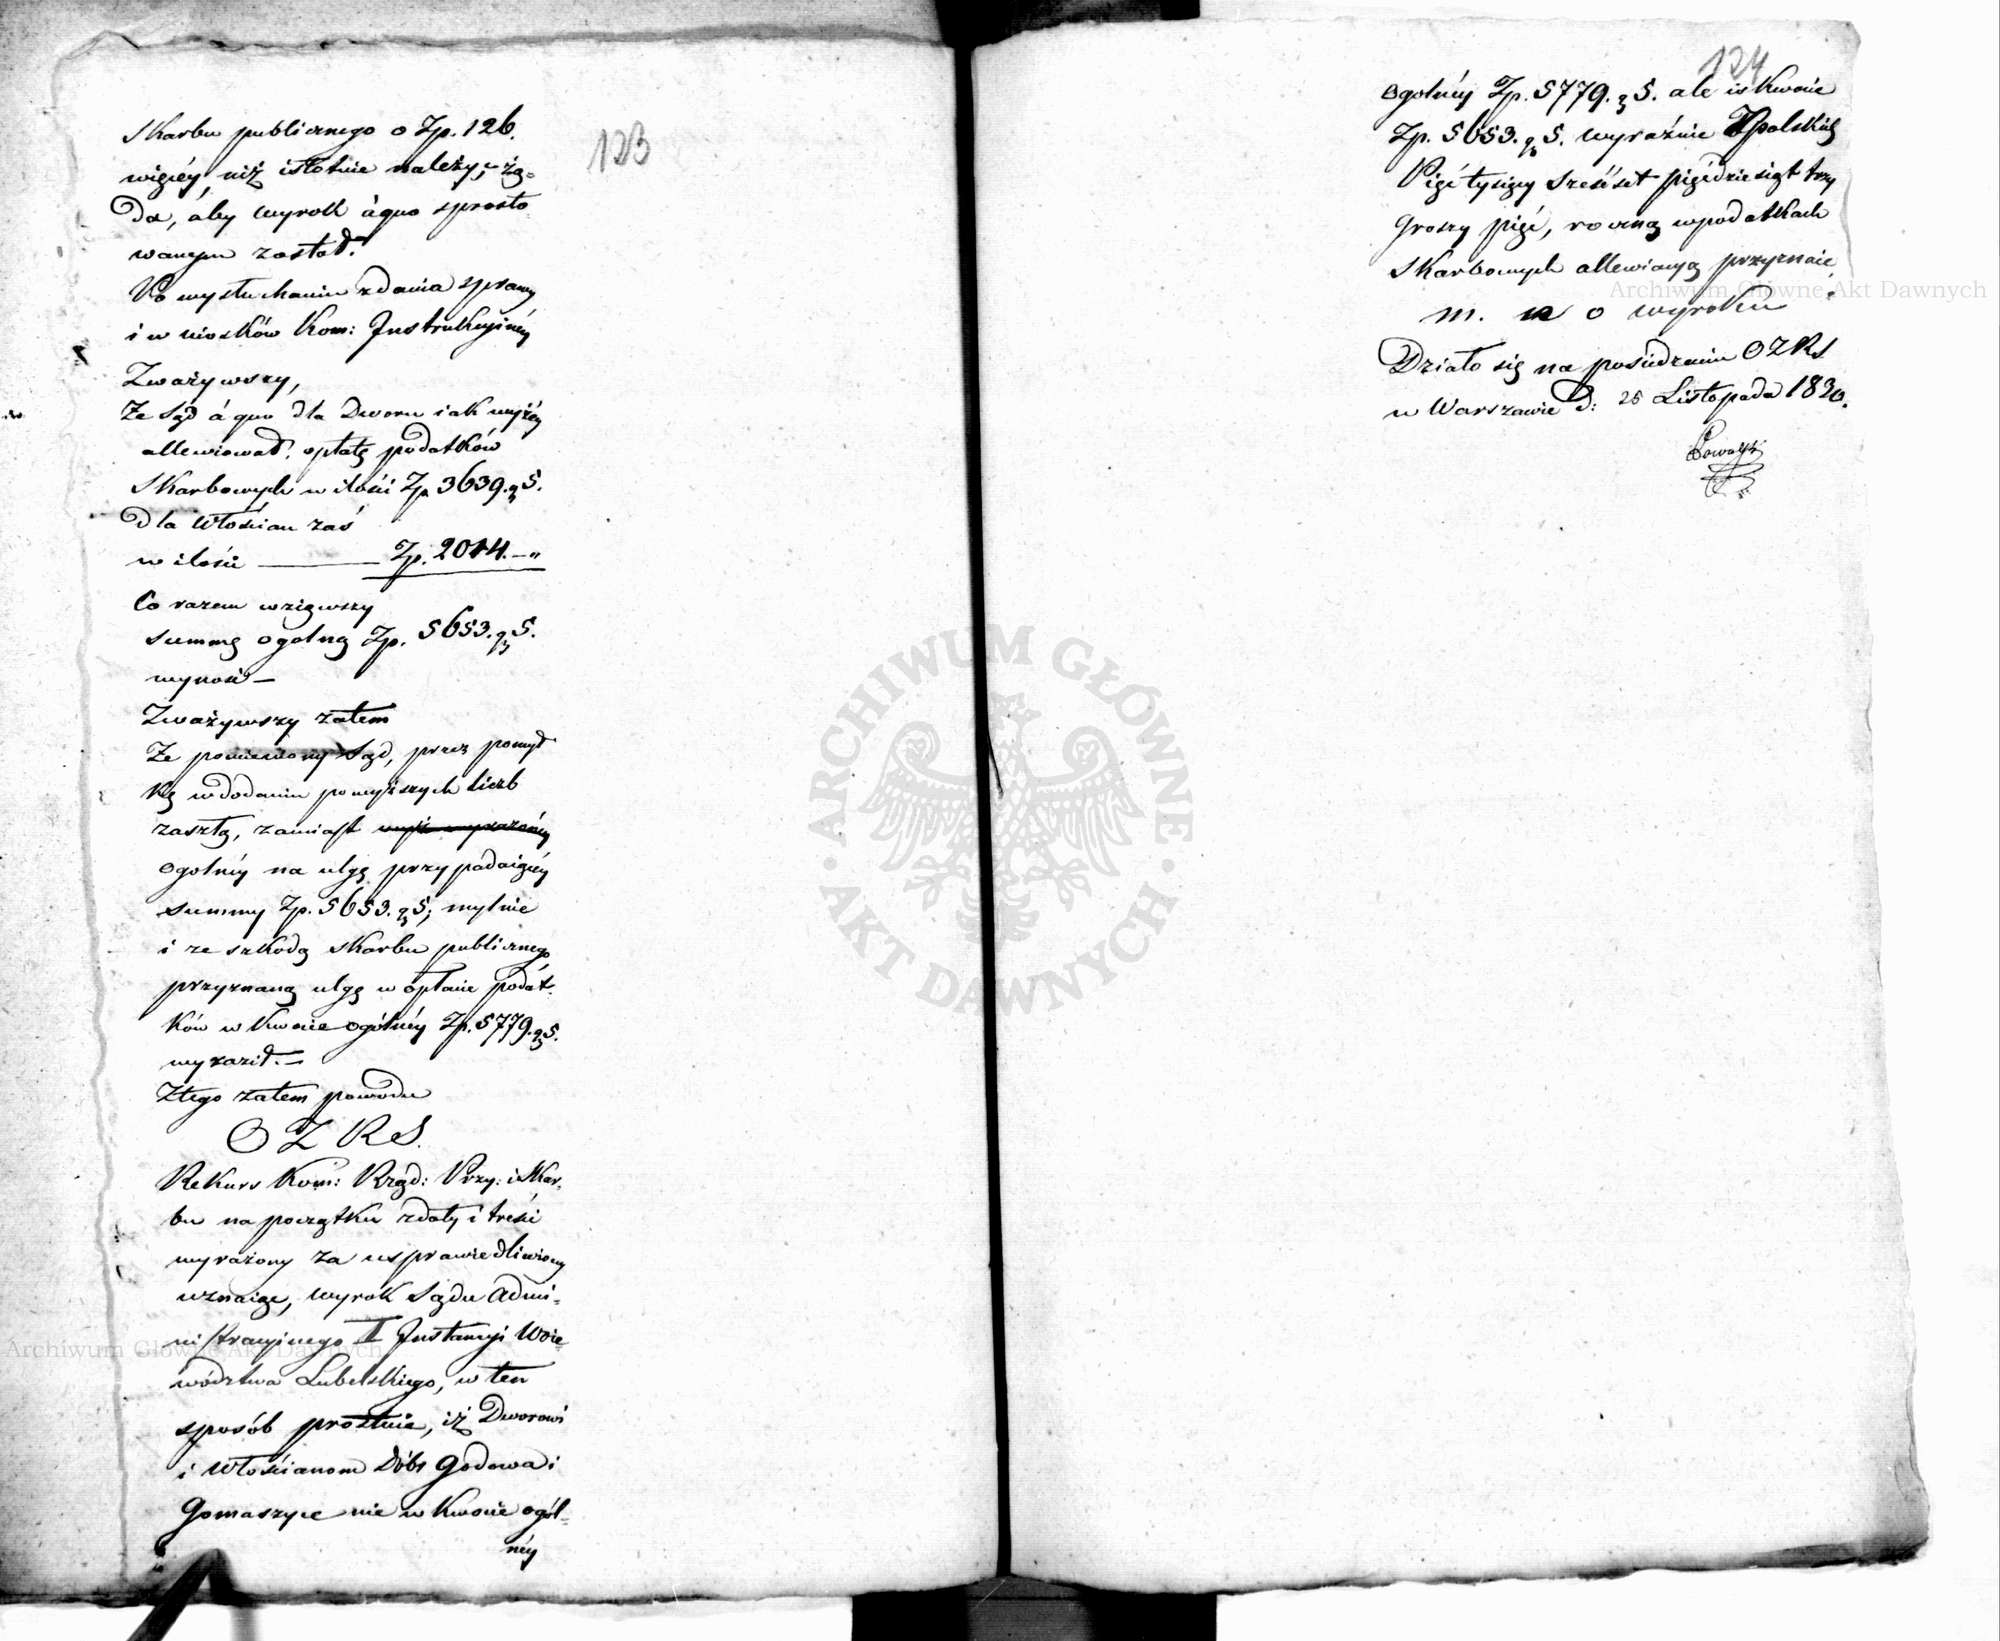 123
Skarbu publicznego o Zp. 126.
więcéy, niż istotnie należy, żą-
da, áby wyrok áquo sprosto
wanym został.
Po wysłuchaniu zdania sprawy
i wniosków Kom: Instrukcyinéy
Zważywszy,
Że Sąd áquo dla Dworu iak wyżéy
allewiował opłatę podatków
Skarbowych w ilości Zp. 3639. g 5.
dla Włościan zaś
w ilości Zp. 2014. — "
Co razem wziąwszy
summę ogolną Zp. 5653. g 5.
wynosi —
Zważywszy zatem
Że pomieniony Sąd, przez pomył
kę w dodaniu powyższych liczb
zaszłą, zamiast wyż wyrażonéy
ogolnéy na ulgę przypadaiącéy
summy Zp. 5653. g 5; mylnie
i ze szkodą skarbu publicznego
przyznaną ulgę w opłacie podat-
ków w kwocie ogólnéy Zp. 5779. g 5.
wyraził. —
Z tego zatem powodu
O Z R S.
Rekurs Kom: Rząd: Przy: i Skar-
bu na początku z daty i treści
wyrażony za usprawiedliwiony
uznaiąc, wyrok Sądu Admi-
nistracyinego I Instancyi Woie-
wództwa Lubelskiego, w ten
sposób prostuie, iż Dworowi
i Włościanom Dóbr Godowa i
Gomaszyce nie w kwocie ogól-
néy
124
ogolnéy Zp. 5779. g 5. ale w kwocie
Zp. 5653. g 5. wyraźnie Złpolskich
Pięć tysięcy sześćset pięćdziesiąt trzy
groszy pięć, roczną w podatkach
Skarbowych allewiacyą przyznaie
m. n o wyroku
Działo się na posiedzeniu OZRS
w Warszawie d: 25 Listopada 1820.
Archiwum Główne Akt Dawnych
Archiwum Główne Akt Dawnych
ARCHIWUM GŁÓWNE · AKT DAWNYCH ·